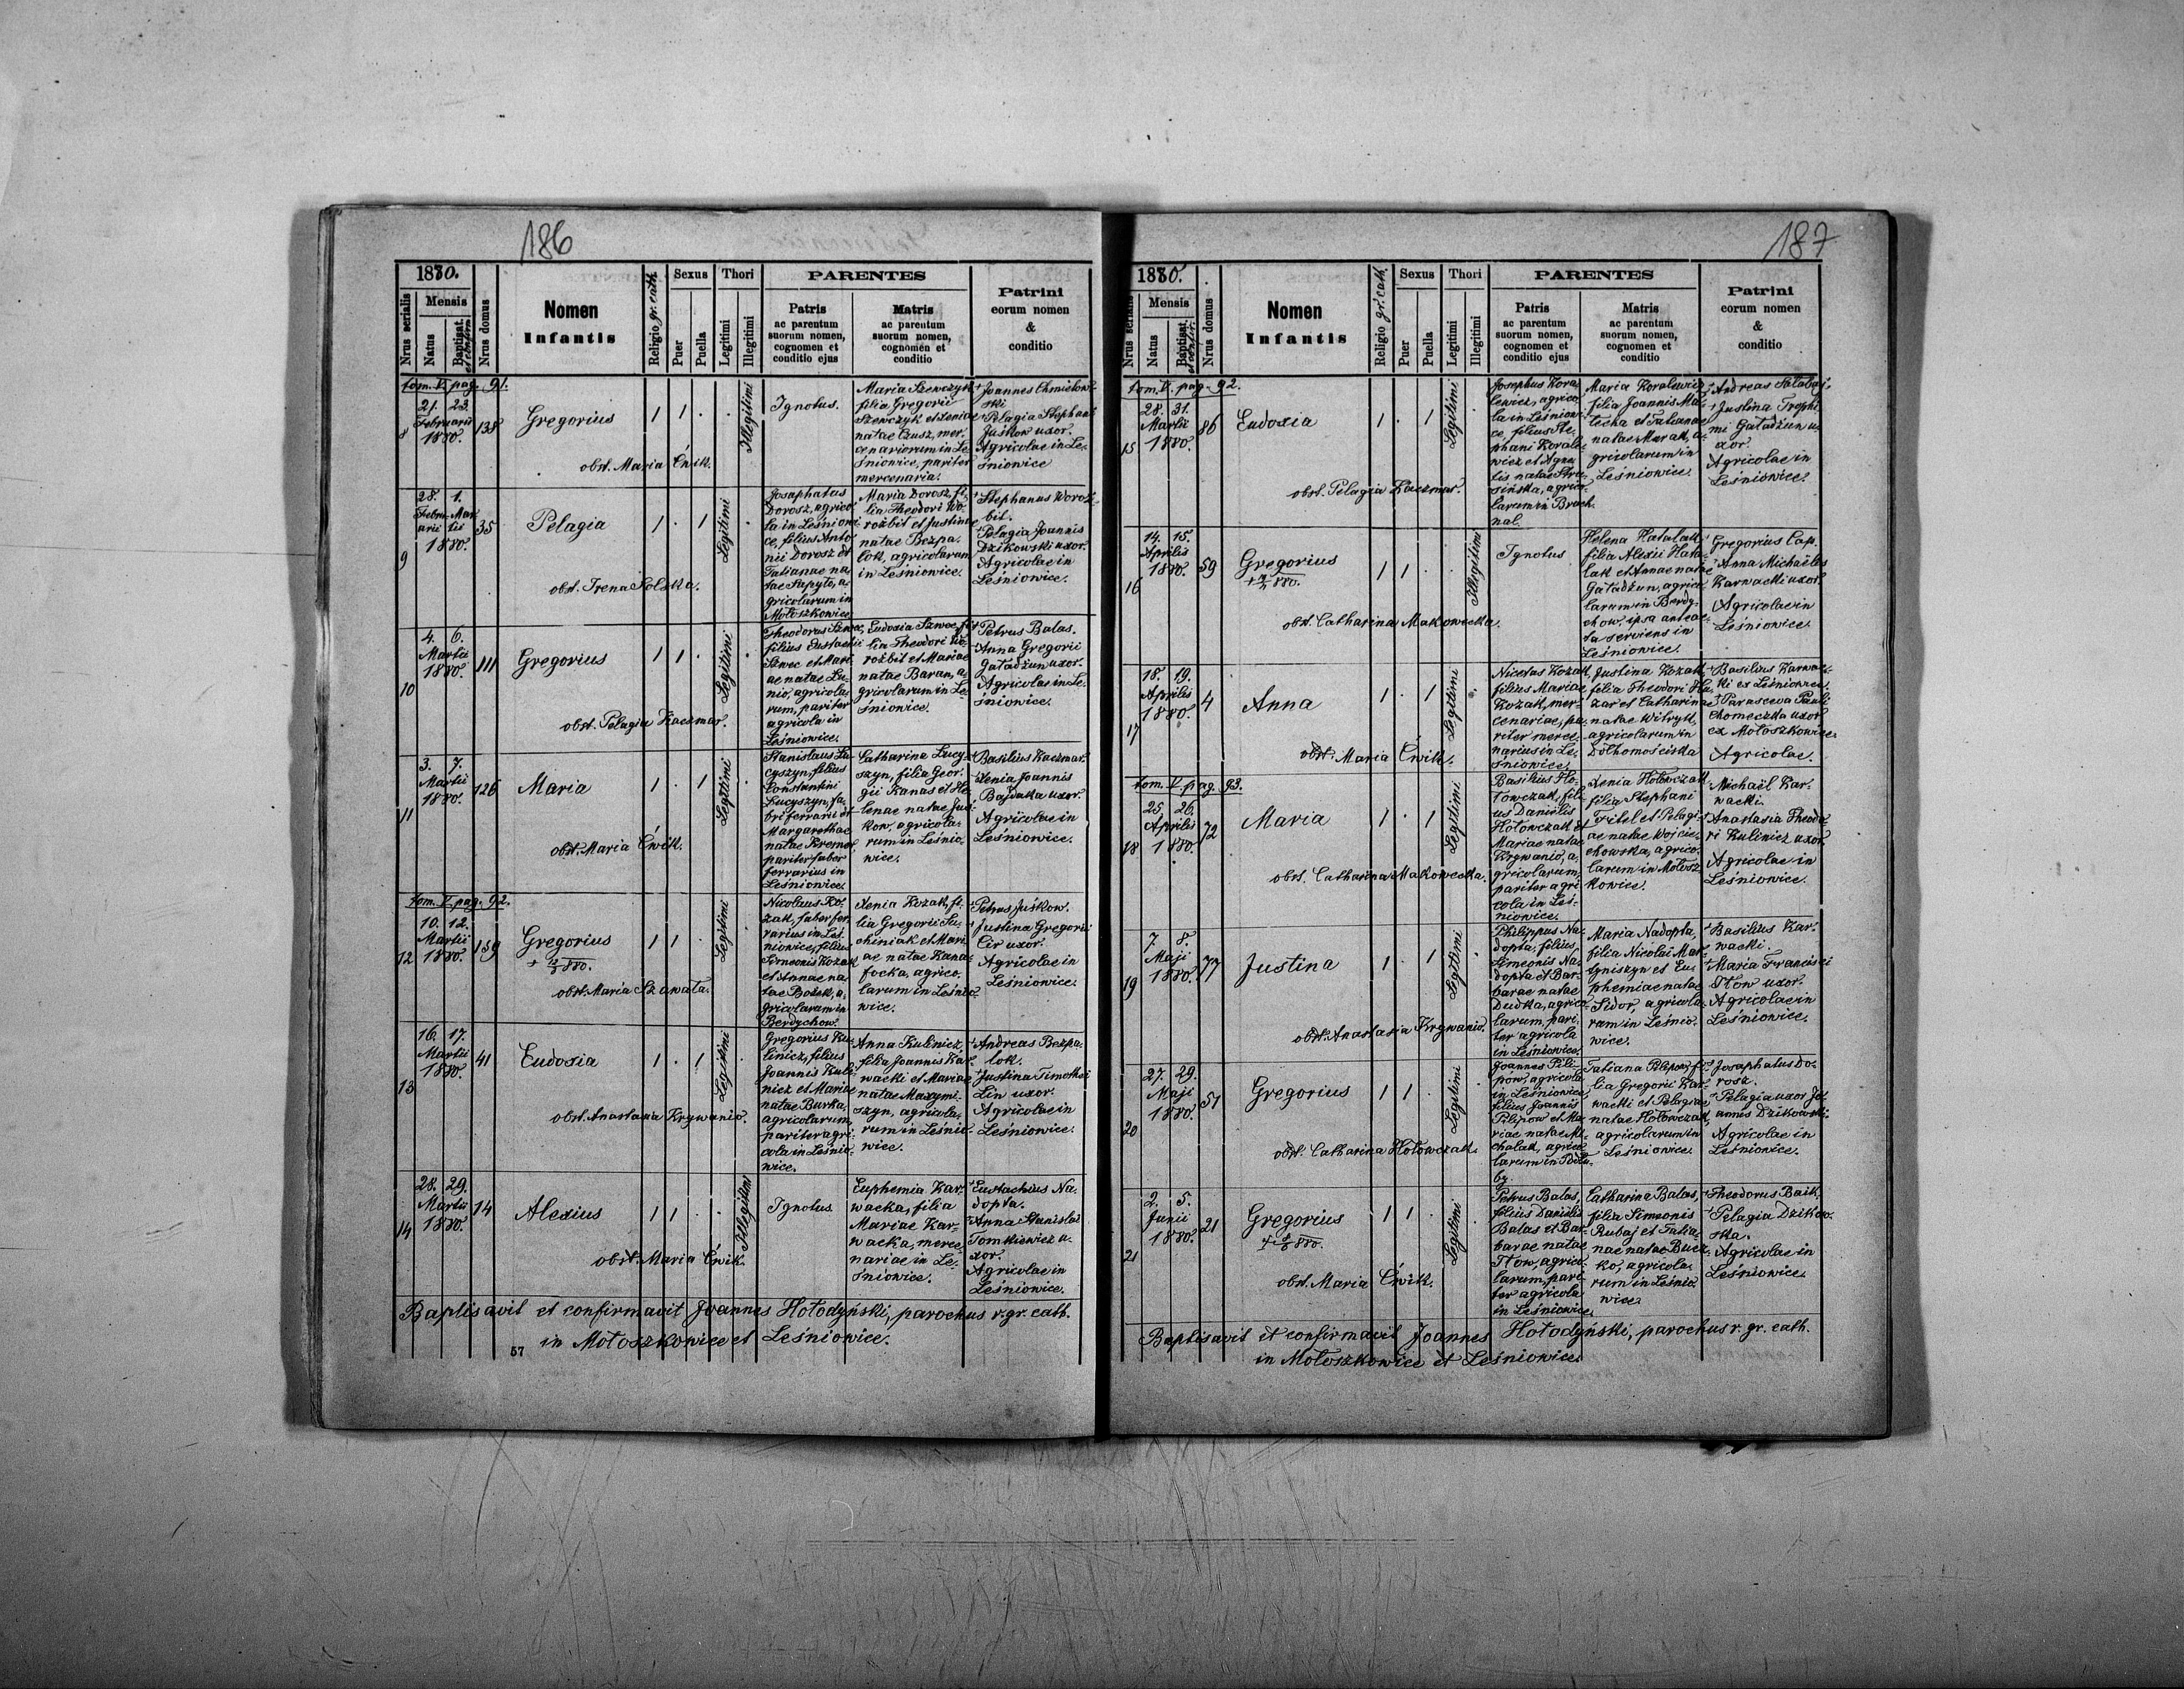 186
1880.
Nrus serialis
Mensis
Natus
Baptisat.
et confirm.
Nrus domus
Nomen
Infantis
Religio gr. cath.
Sexus
Puer
Puella
Thori
Legitimi
Illegitimi
PARENTES
Patris
ac parentum
suorum nomen,
cognomen et
conditio ejus
Matris
ac parentum
suorum nomen,
cognomen et
conditio
Patrini
eorum nomen
&
conditio
tom. V. pag. 91.
8
21. 23.
Februarii
1880.
138
Gregorius
obst. Maria Ćwik.
1 1 . .
Illegitimi
Ignotus.
Maria Szewczyk
filia Gregorii
Szewczyk et Xeniae
natae Czusz, mer-
cenariorum in Le-
śniowice, pariter
mercenaria.
+Joannes Chmielow-
ski
+Pelagia Stephani
Juśkow uxor.
Agricolae in Le-
śniowice
9
28. 1.
Febru- Mar-
arii tii
1880.
35
Pelagia
obst. Irena Solska.
1 . 1
Legitimi
.
Josaphatus
Dorosz, agrico-
la in Leśniowi-
ce, filius Anto-
nii Dorosz et
Tatianae na-
tae Sapyto, a-
gricolarum in
Mołoszkowice
Maria Dorosz, fi-
lia Theodori Wo-
rożbit et Justinae
natae Bezpa-
lok, agricolarum
in Leśniowice.
+Stephanus Woroż-
bit.
+Pelagia Joannis
Dzikowski uxor.
Agricolae in
Leśniowice.
10
4. 6.
Martii
1880.
111
Gregorius
obst. Pelagia Kaczmar.
1 1 .
Legitimi
.
Theodorus Szwec,
filius Eustachii
Szwec et Mari-
ae natae Lu-
nio, agricola-
rum, pariter
agricola in
Leśniowice.
Eudoxia Szwec, fi-
lia Theodori Wo-
rożbit et Mariae
natae Baran, a-
gricolarum in Le-
śniowice.
+Petrus Balas.
+Anna Gregorii
Gaładżun uxor.
Agricolae in Le-
śniowice.
11
3. 7.
Martii
1880.
126
Maria
obst. Maria Ćwik.
1 . 1
Legitimi
.
Stanislaus Lu-
cyszyn, filius
Constantini
Lucyszyn, fa-
bri ferrarii et
Margarethae
natae Kremer,
pariter faber
ferrarius in
Leśniowice.
Catharina Lucy-
szyn, filia Geor-
gii Kanas et He-
lenae natae Juś-
kow, agricola-
rum in Leśnio-
wice.
+Basilius Kaczmar.
+Xenia Joannis
Bajdaka uxor.
Agricolae in
Leśniowice.
tom. V. pag. 92.
12
10. 12.
Martii
1880.
159
Gregorius
obst. Maria Szawała.
1 1 .
Legitimi
Nicolaus Ko-
zak, faber fer-
rarius in Leś-
niowice, filius
Simeonis Kozak
et Annae na-
tae Bożek, a-
gricolarum in
Berdychow.
Xenia Kozak, fi-
lia Gregorii Su-
chiniak et Mari-
ae natae Kana-
focka, agrico-
larum in Leśnio-
wice.
+Petrus Juśkow.
+Justina Gregorii
Cir uxor.
Agricolae in
Leśniowice.
13
16. 17.
Martii
1880.
41
Eudoxia
obst. Anastasia Krywanio.
1 . 1
Legitimi
.
Gregorius Ku-
linicz, filius
Joannis Kuli-
nicz et Mariae
natae Burka,
agricolarum,
pariter agri-
cola in Leśnio-
wice.
Anna Kulinicz,
filia Joannis Kar-
wacki et Mariae
natae Maxymi-
szyn, agricola-
rum in Leśnio-
wice.
+Andreas Bezpa-
lok.
+Justina Timothei
Lin uxor.
Agricolae in
Leśniowice.
14
28. 29.
Martii
1880.
14
Alexius
obst. Maria Ćwik.
1 1 . .
Illegitimi
Ignotus
Euphemia Kar-
wacka, filia
Mariae Kar-
wacka, merce-
nariae in Le-
śniowice.
+Eustachius Na-
dopta.
+Anna Stanislai
Tomkiewicz u-
xor.
Agricolae in
Leśniowice.
Baptisavit et confirmavit Joannes Hołodyński, parochus r. gr. cath.
in Mołoszkowice et Leśniowice.
57
187
1880.
Nrus serialis
Mensis
Natus
Baptisat.
et confir.
Nrus domus
Nomen
Infantis
Religio gr. cath.
Sexus
Puer
Puella
Thori
Legitimi
Illegitimi
PARENTES
Patris
ac parentum
suorum nomen,
cognomen et
conditio ejus
Matris
ac parentum
suorum nomen,
cognomen et
conditio
Patrini
eorum nomen
&
conditio
tom. V. pag. 92.
15
28. 31.
Martii
1880.
86
Eudoxia
obst. Pelagia Kaczmar.
1 . 1
Legitimi
.
Josephus Kora-
lewicz, agrico-
la in Leśniowi-
ce, filius Ste-
phani Korale-
wicz et Agne-
tis natae Stru-
sińska, agrico-
larum in Bruch-
nal.
Maria Koralewicz,
filia Joannis Ma-
techa et Tatianae
natae Murak, a-
gricolarum in
Leśniowice.
+Andreas Sałabaj.
+Justina Trophi-
mi Gaładżun u-
xor.
Agricolae in
Leśniowice.
16
14. 15.
Aprilis
1880.
59
Gregorius
obst. Catharina Makowecka.
1 1 . .
Illegitimi
Ignotus
Helena Hatalak
filia Alexii Hata-
lak et Annae natae
Gaładżun, agrico-
larum in Berdy-
chow, ipsa anteac-
ta serviens in
Leśniowice.
+Gregorius Cap.
+Anna Michaëlis
Karwacki uxor.
Agricolae in
Leśniowice.
17
18. 19.
Aprilis
1880.
4
Anna
obst. Maria Ćwik.
1 . 1
Legitimi
.
Nicetas Kozak,
filius Mariae
Kozak, mer-
cenariae, pa-
riter merce-
narius in Le-
śniowice.
Justina Kozak,
filia Theodori Hu-
zar et Catharinae
natae Witryk,
agricolarum in
Dołhomościska
+Basilius Karwac-
ki ex Leśniowice.
+Parasceva Pauli
Chomeczka uxor
ex Mołoszkowice.
Agricolae.
tom. V. pag. 93.
18
25. 26.
Aprilis
1880.
72
Maria
obst. Catharina Makowecka.
1 . 1
Legitimi
.
Basilius Ho-
łowczak, fili-
us Danielis
Hołowczak et
Mariae natae
Krywanio, a-
gricolarum,
pariter agri-
cola in Leś-
niowice.
Xenia Hołowczak
filia Stephani
Fritel et Pelagi-
ae natae Wojcie-
chowska, agrico-
larum in Mołosz-
kowice.
+Michaël Kar-
wacki.
+Anastasia Theodo-
ri Kulinicz uxor.
Agricolae in
Leśniowice.
19
7. 8.
Maji
1880.
77
Justina
obst. Anastasia Krywanio.
1 . 1
Legitimi
.
Philippus Na-
dopta, filius
Simeonis Na-
dopta et Bar-
barae natae
Dudka, agrico-
larum, pari-
ter agricola
in Leśniowice.
Maria Nadopta,
filia Nicolai Mar-
tyniszyn et Eu-
phemiae natae
Sidor, agricola-
rum in Leśnio-
wice.
+Basilius Kar-
wacki.
+Maria Francisci
Itow uxor.
Agricolae in
Leśniowice.
20
27. 29.
Maji
1880.
51
Gregorius
obst. Catharina Hołowczak.
1 1 .
Legitimi
.
Joannes Pili-
pow, agricola
in Leśniowice,
filius Joannis
Pilipow et Ma-
riae natae Mi-
chalak, agrico-
larum in Podłu-
by.
Tatiana Pilipow, fi-
lia Gregorii Kar-
wacki et Pelagiae
natae Hołowczak,
agricolarum in
Leśniowice.
+Josaphatus Do-
rosz.
+Pelagia uxor Jo-
annes Dzikowski.
Agricolae in
Leśniowice.
21
2. 5.
Junii
1880.
21
Gregorius
obst. Maria Ćwik.
1 1 .
Legitimi
Petrus Balas,
filius Danielis
Balas et Bar-
barae natae
Itow, agrico-
larum, pari-
ter agricola
in Leśniowice.
Catharina Balas,
filia Simeonis
Rubaj et Tatia-
nae natae Bucz-
ko, agricola-
rum in Leśnio-
wice.
+Theodorus Baik.
+Pelagia Dzikow-
ska.
Agricolae in
Leśniowice.
Baptisavit et confirmavit Joannes Hołodyński, parochus r. gr. cath.
in Mołoszkowice et Leśniowice.